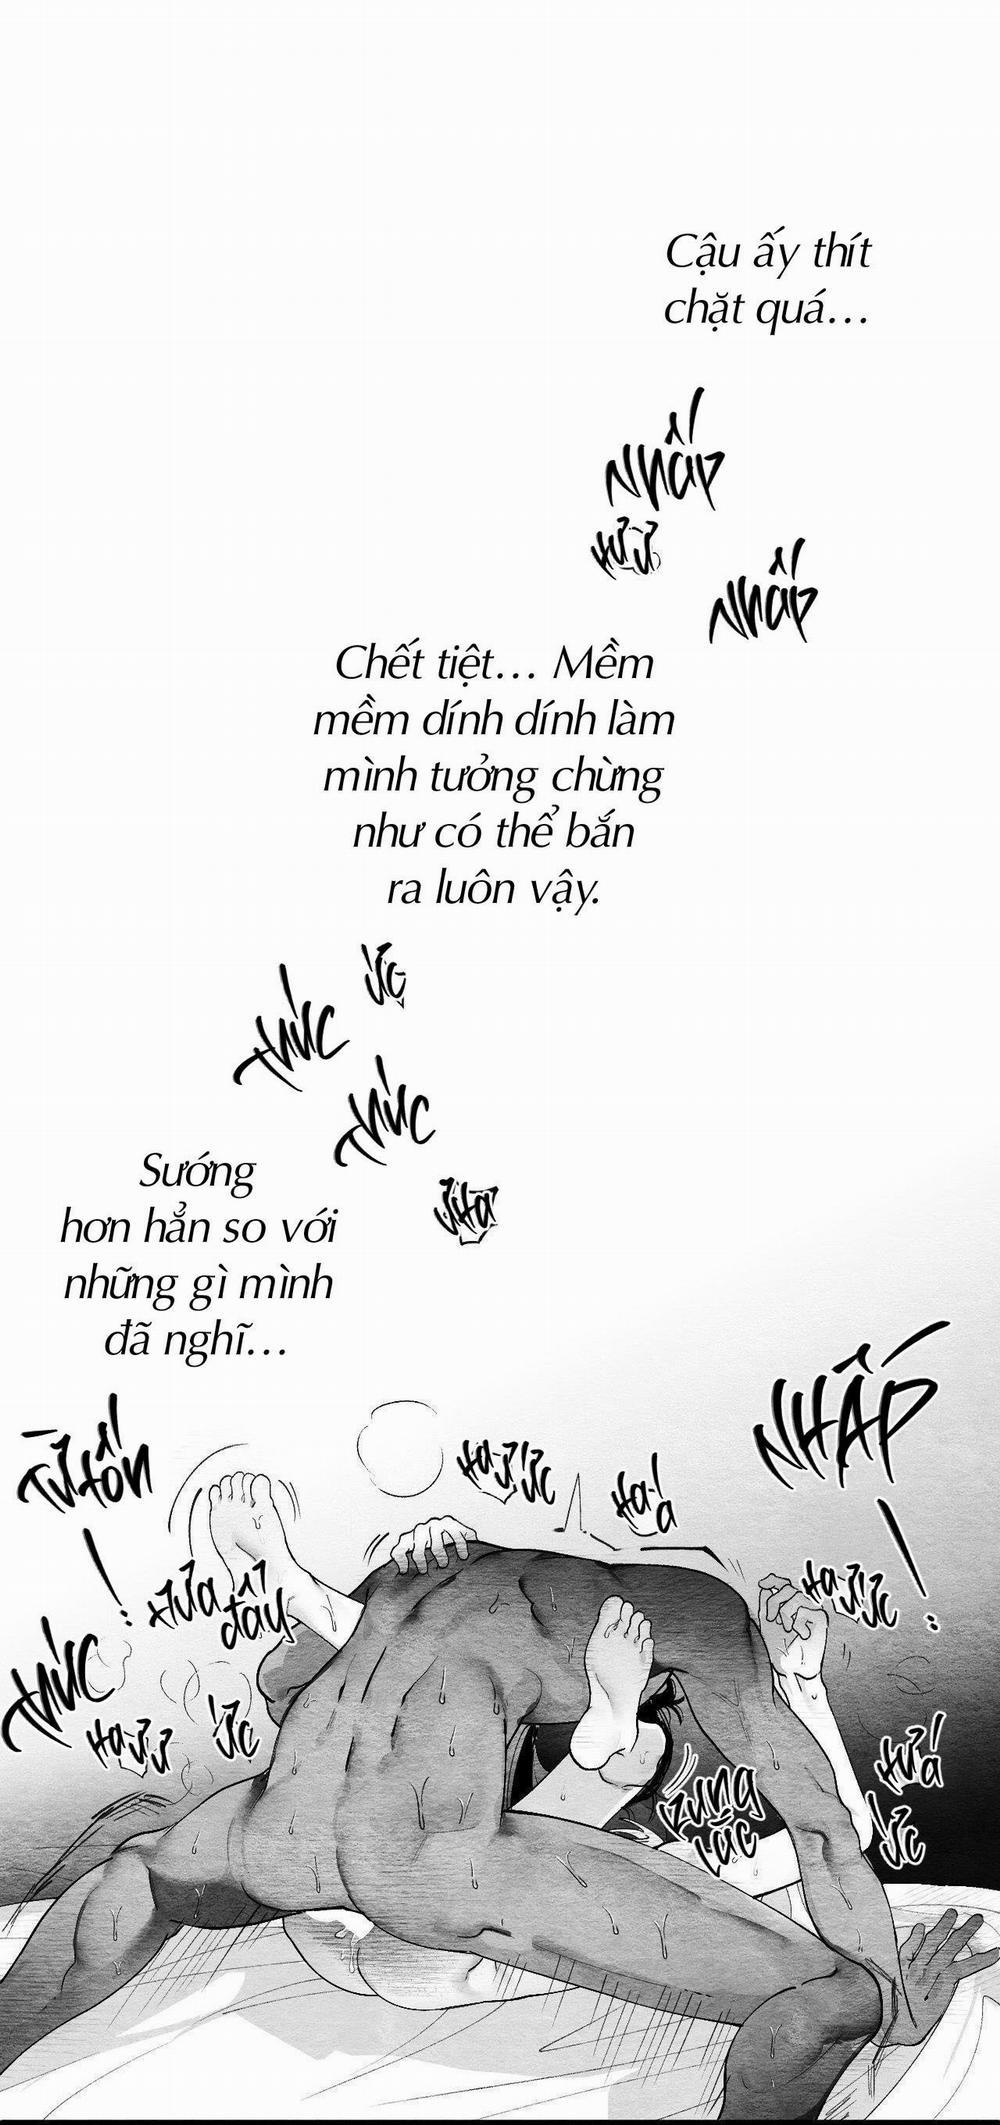 Cậu ấy thít
chặt quá...
NHẤP
HƯ Ử
NHẤP
Chết tiệt... Mềm
mềm dính dính làm
mình tưởng chừng
như có thể bắn
ra luôn vậy.
ỨC
THÚC
THÚC
ƯHA
Sướng
hơn hẳn so với
những gì mình
đã nghĩ...
NHẤP
!
TỪ TỐN
!
HA Ư ỨC
HA Á
HA Ư ỨC
HỪA
ĐẨY
THÚC
HA Ư Ư
ỨC
RUNG
LẮC
HƯ Á
ỨC